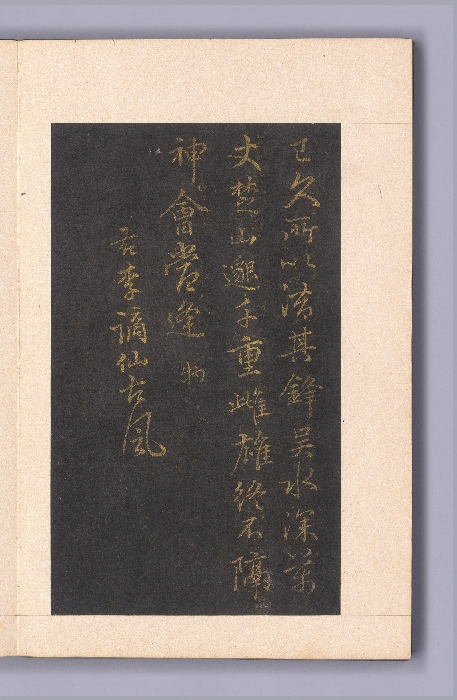 已久所以潛其鋒吴水深萬
丈楚山邈千重雌雄終不隔
神會當逢 物
右李謫仙古風